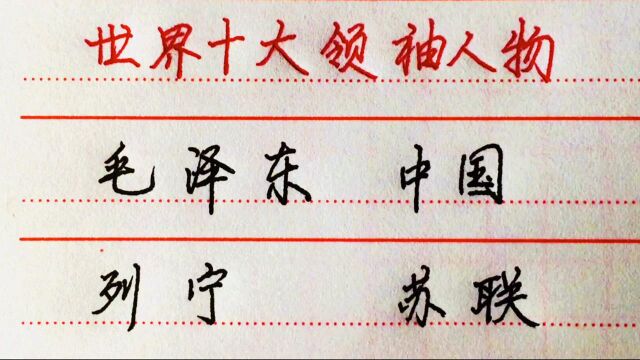 世界十大领袖人物
毛泽东 中国
列宁 苏联